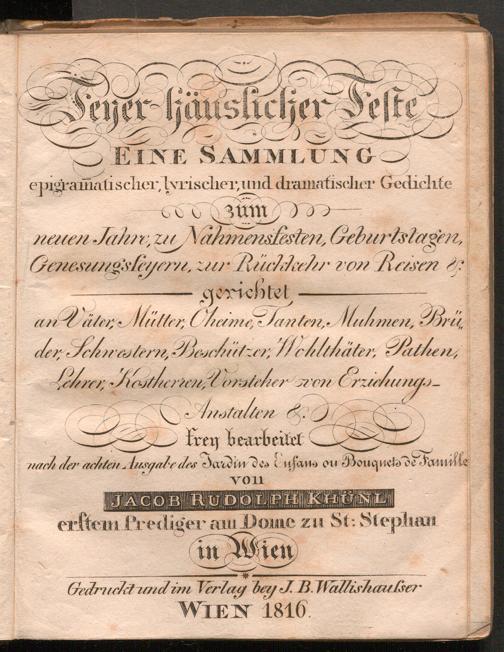 Feyer-häuslicher Feste
EINE SAMMLUNG
epigram̄atischer, lyrischer, und dramatischer Gedichte
zum
neuen Jahre, zu Nahmensfesten, Geburtstagen,
Genesungsfeyern, zur Rückkehr von Reisen &.
gerichtet
an Väter, Mütter, Oheime, Tanten, Muhmen, Brü„
der, Schwestern, Beschützer, Wohlthäter, Pathen,
Lehrer, Kostherren, Vorsteher von Erziehungs-
Anstalten &.
frey bearbeitet
nach der achten Ausgabe des Jardin des Enfans ou Bouquets de Famille
von
JACOB RUDOLPH KHÜNL
erstem Prediger am Dome zu St: Stephan
in Wien
Gedruckt und im Verlag bey J. B. Wallishausser
WIEN 1816.